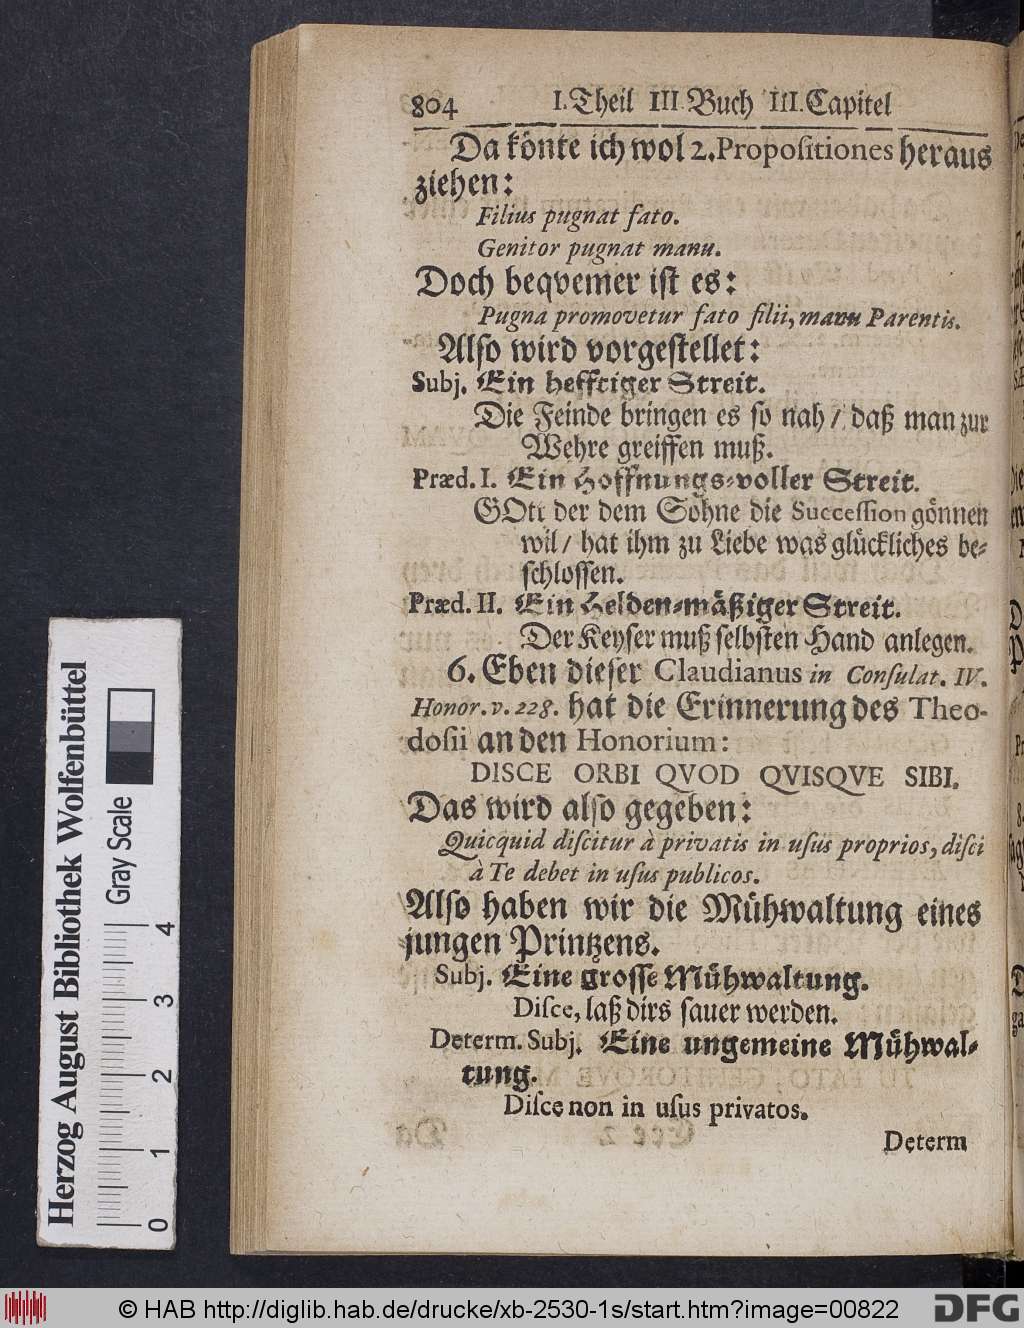 804 I. Theil III. Buch III. Capitel
Da könte ich wol 2. Propoſitiones heraus
ziehen:
Filius pugnat fato.
Genitor pugnat manu.
Doch beqvemer iſt es:
Pugna promovetur fato filii, manu Parentis.
Alſo wird vorgeſtellet:
Subj. Ein hefftiger Streit.
Die Feinde bringen es ſo nah / daß man zur
Wehre greiffen muß.
Præd. I. Ein Hoffnungs-voller Streit.
GOtt der dem Sohne die Succeſſion gönnen
wil / hat ihm zu Liebe was glückliches be-
ſchloſſen.
Præd. II. Ein Helden-mäßiger Streit.
Der Keyſer muß ſelbſten Hand anlegen.
6. Eben dieſer Claudianus in Conſulat. IV.
Honor. v. 228. hat die Erinnerung des Theo-
doſii an den Honorium:
DISCE ORBI QVOD QVISQVE SIBI.
Das wird alſo gegeben:
Quicquid diſcitur à privatis in uſus proprios, diſci
à Te debet in uſus publicos.
Alſo haben wir die Mühwaltung eines
jungen Printzens.
Subj. Eine groſſe Mühwaltung.
Diſce, laß dirs ſauer werden.
Determ. Subj. Eine ungemeine Mühwal-
tung.
Diſce non in uſus privatos.
Determ
Herzog August Bibliothek Wolfenbüttel
Gray Scale
0 1 2 3 4
© HAB http://diglib.hab.de/drucke/xb-2530-1s/start.htm?image=00822
DFG